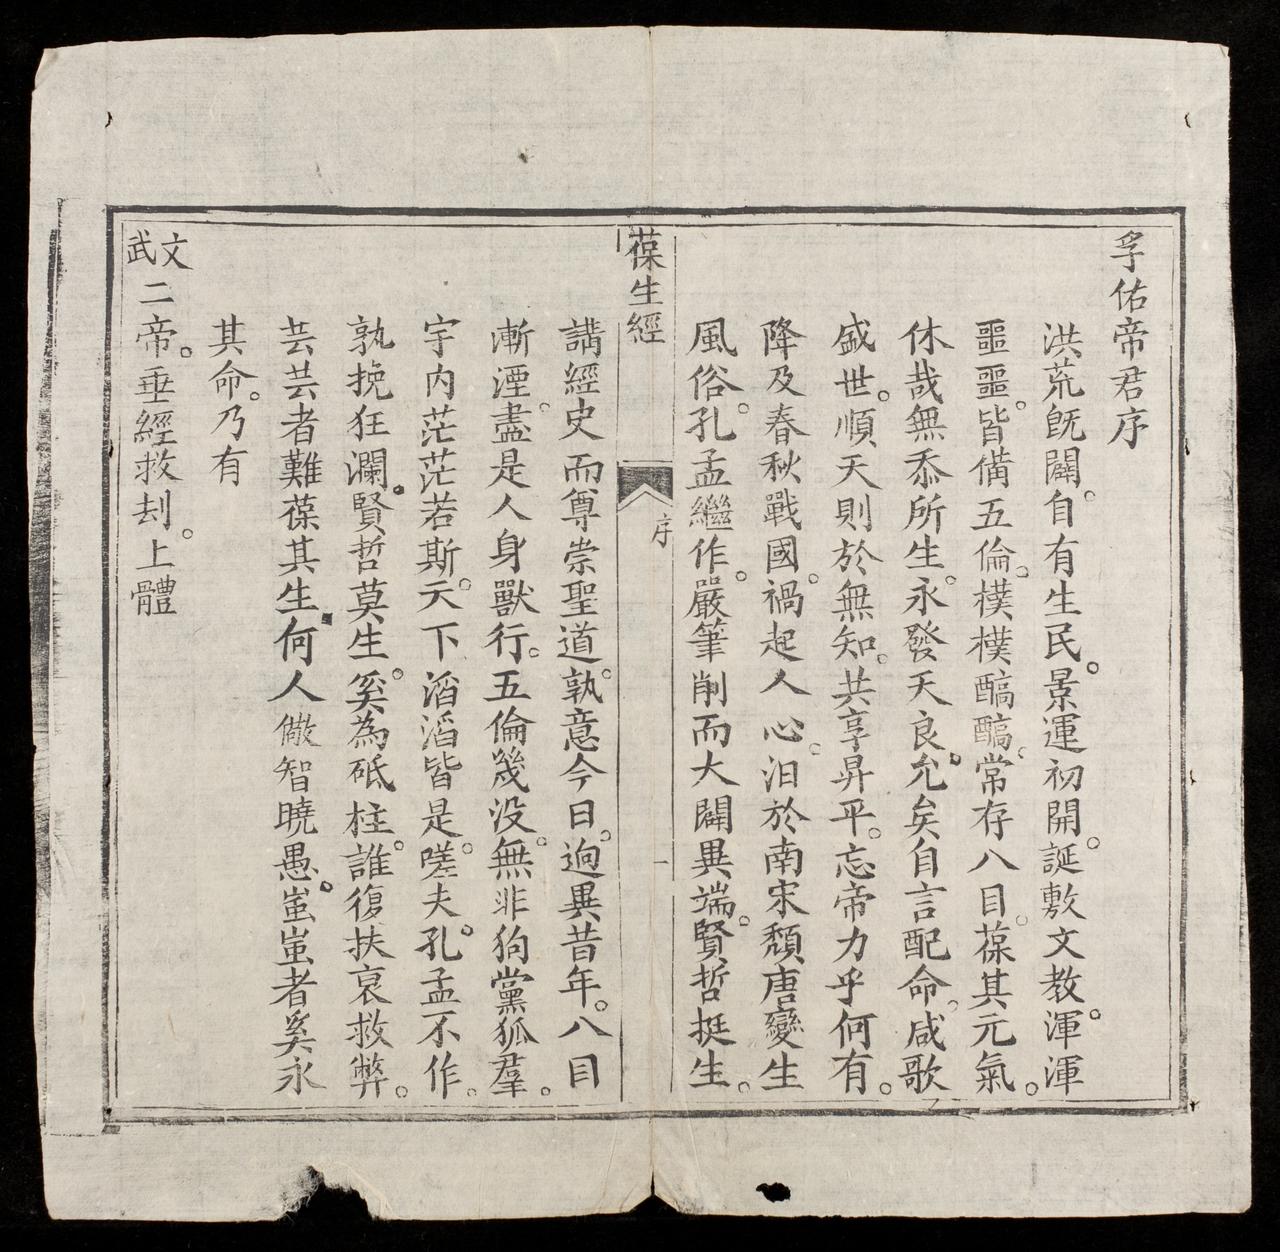 孚佑帝君序
洪荒旣闢。自有生民。景運初開。誕敷文教。渾渾
噩噩。皆備五倫。樸樸醕醕。常存八目。葆其元氣。
休哉無忝所生。永發天良。允矣自言配命。咸歌
盛世。順天則於無知。共享昇平。忘帝力乎何有。
降及春秋戰國。禍起人心。汨於南宋頹唐。變生
風俗。孔孟繼作。嚴筆削而大闢異端。賢哲挺生。
葆生經
序
一
講經史而尊崇聖道。孰意今日。迥異昔年。八目
漸湮。盡是人身獸行。五倫幾没。無非狗黨狐羣。
宇内茫茫若斯。天下滔滔皆是。嗟夫。孔孟不作。
孰挽狂瀾。賢哲莫生。奚為砥柱。誰復扶衰救弊。
芸芸者難葆其生。何人儆智曉愚。蚩蚩者奚永
其命。乃有
文武二帝。垂經救刦。上體